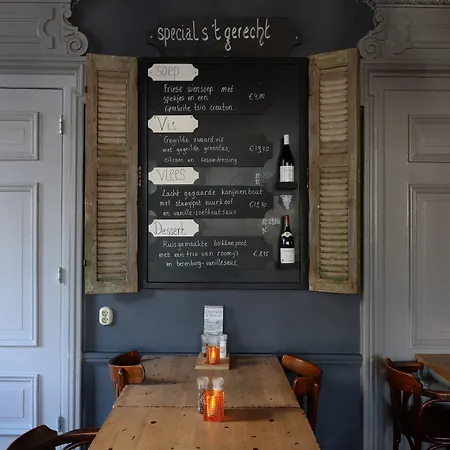 specials 't gerecht
Soep
Friese uiensoep met
spekjes en een
gesmolte kaas crouton... €4,80
Vis
Gegrilde zwaard vis
met gegrilde groenten,
citroen en sesamdressing €19,80
Vlees
Zacht gegaarde konijnenbout
met stamppot zuurkool €19,70
en vanillezoethoutsaus
Dessert
Huisgemaakte bokkenpoot
met een trio van roomijs
en berenburg-vanillesaus. €8,75